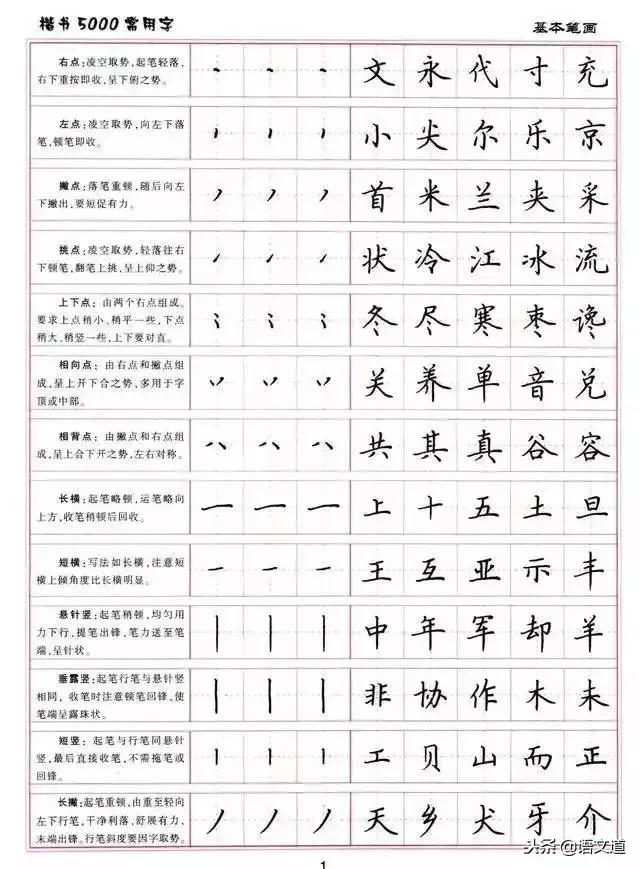 楷书5000常用字
基本笔画
右点：凌空取势，起笔轻落，
右下重按即收，呈下俯之势。
文 永 代 寸 充
左点：凌空取势，向左下落
笔，顿笔即收。
小 尖 尔 乐 京
撇点：落笔重顿，随后向左
下撇出，要短促有力。
首 米 兰 夹 采
挑点：凌空取势，轻落往右
下顿笔，翻笔上挑，呈上仰之势。
状 冷 江 冰 流
上下点：由两个右点组成。
要求上点稍小、稍平一些，下点
稍大，稍竖一些，上下要对直。
冬 尽 寒 枣 谗
相向点：由右点和撇点组
成，呈上开下合之势，多用于字
顶或中部。
关 养 单 音 兑
相背点：由撇点和右点组
成，呈上合下开之势，左右对称。
共 其 真 谷 容
长横：起笔略顿，运笔略向
上方，收笔稍顿后回收。
上 十 五 土 旦
短横：写法如长横，注意短
横上倾角度比长横明显。
王 互 亚 示 丰
悬针竖：起笔稍顿，均匀用
力下行，提笔出锋，笔力送至笔
端，呈针状。
中 年 军 却 羊
垂露竖：起笔行笔与悬针竖
相同，收笔时注意顿笔回锋，使
笔端呈露珠状。
非 协 作 木 未
短竖：起笔与行笔同悬针
竖，最后直接收笔，不需拖笔或
回锋。
工 贝 山 而 正
长撇：起笔重顿，由重至轻向
左下行笔，干净利落，舒展有力，
末端出锋。行笔斜度要因字取势。
天 乡 犬 牙 介
头条@语文道
1